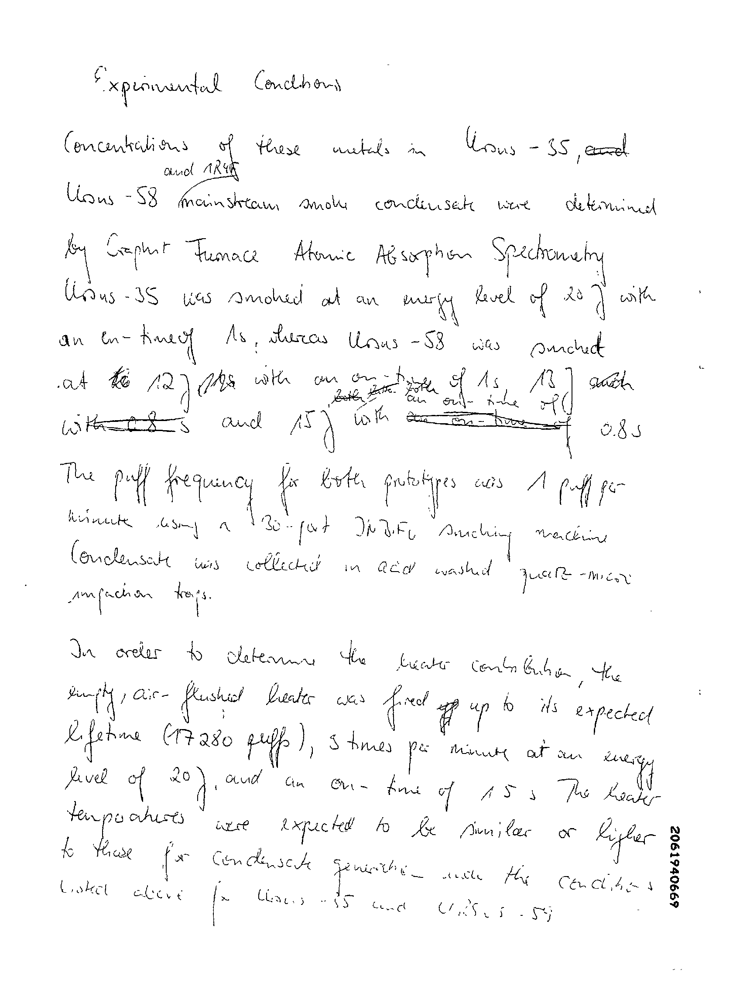 Experimental Conditions
Concentrations of these metals in Ursus - 35, and
and 1R4F
Ursus - 58 mainstream smoke condensate were determined
by Graphit Furnace Atomic Absorption Spectrometry
Ursus - 35 was smoked at an energy level of 20 J with
an on-time of 1s, wheras Ursus - 58 was smoked
at 12 J with an on-time of 1s 13 J
both both both an on-time of
with 0.8 s and 15 J with an on-time of 0.8 s
The puff frequency for both prototypes was 1 puff per
minute using a 30-port smoking machine
Condensate was collected in acid washed quartz-micro
impaction traps.
In order to determine the heater contribution, the
empty, air-flushed heater was fired up to its expected
lifetime (17280 puffs), 3 times per minute at an energy
level of 20 J, and an on-time of 1 5 s The heater
temperatures were expected to be similar or higher
to those for condensate generation with the conditions
listed above for Ursus - 35 and Ursus - 58
2061940669